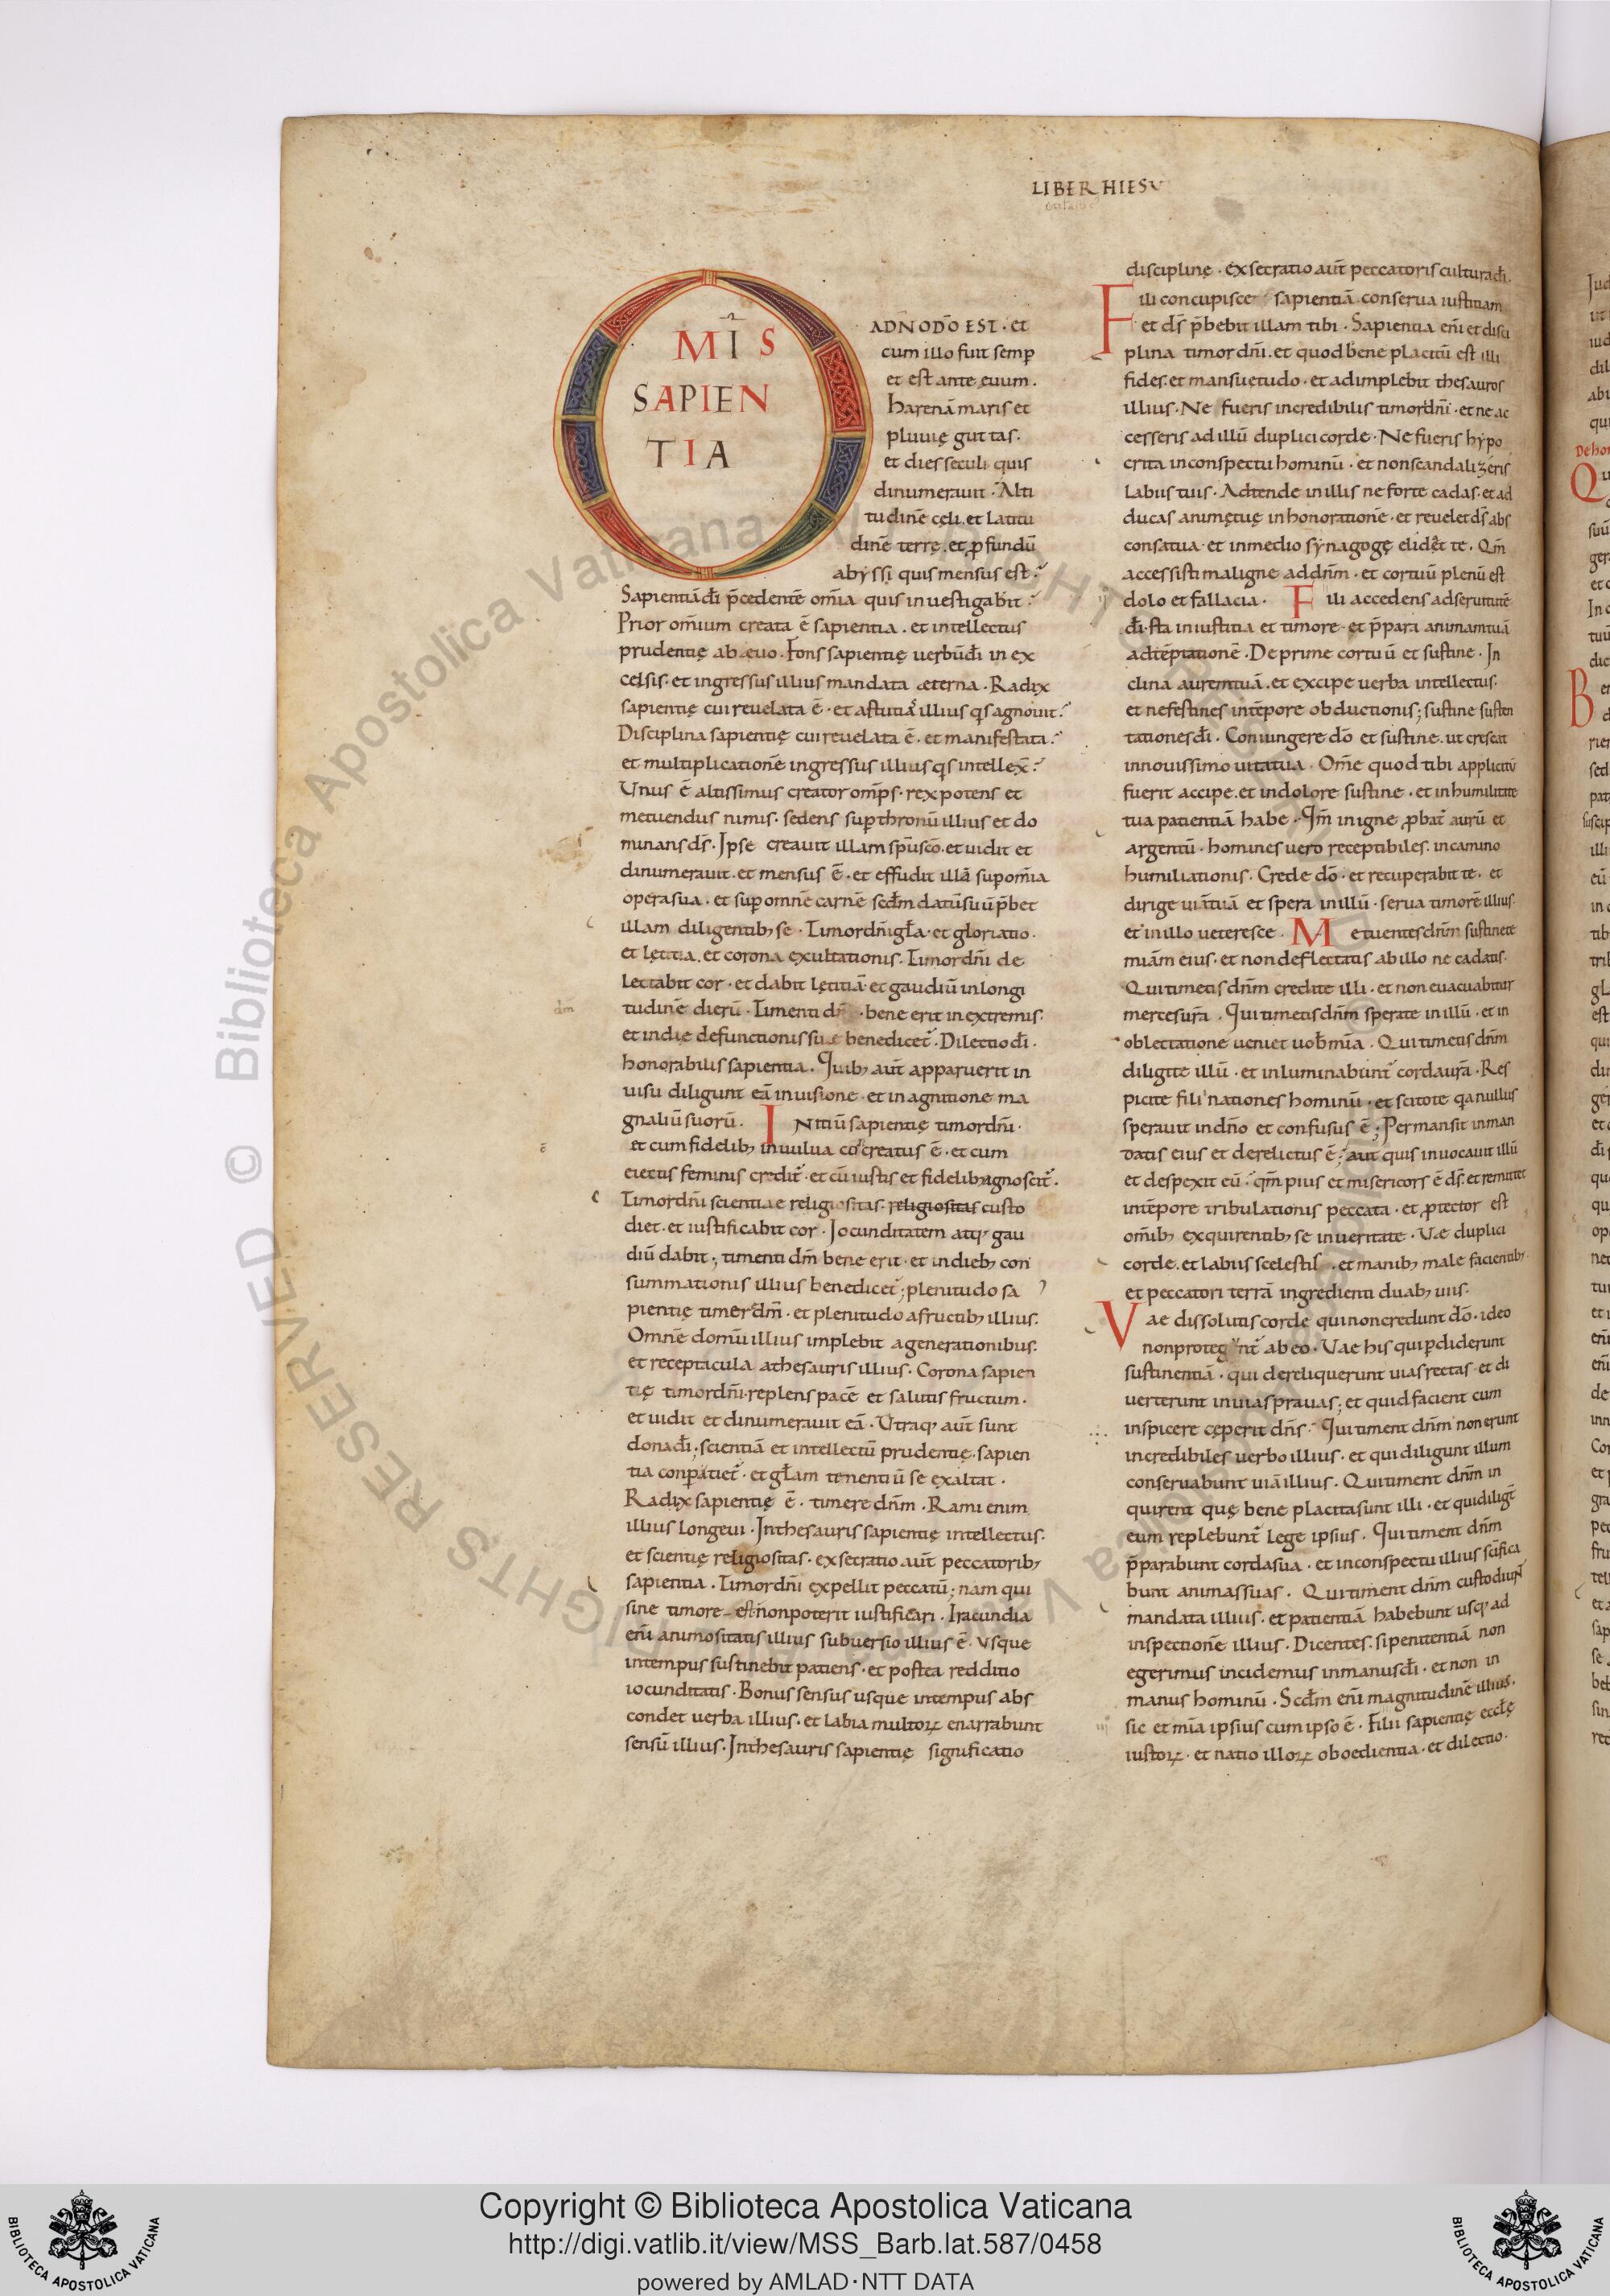 LIBER HIESV
OMIS̄
SAPIEN
TIA
A DN̄O DŌ EST · et
cum illo fuit semꝑ
et est ante ęuum ·
Harenā maris et
pluuię guttas ·
et dies seculi quis
dinumerauit · Alti
tudinē cęli · et latitu
dinē terrę · et ꝓfundū
abyssi quis mensus est ·
Sapientiā dī p̄cedentē om̄ia quis inuestigabit ·
Prior om̄ium creata ē sapientia · et intellectus
prudentię ab ęuo · Fons sapientię uerbū dī in ex
celsis · et ingressus illius mandata æterna · Radix
sapientię cui reuelata ē · et astutiā illius q̄s agnouit ·
Disciplina sapientię cui reuelata ē · et manifestata ·
et multiplicationē ingressus illius q̄s intellex̄ ·
Unus ē altissimus creator om̄ps · rex potens et
metuendus nimis · sedens suꝑ thronū illius et do
minans ds̄ · Ipse creauit illam sp̄u sc̄o · et uidit et
dinumerauit · et mensus ē · et effudit illā suꝑ om̄ia
opera sua · et suꝑ omnē carnē sec̄dm datū suū p̄bet
illam diligentib; se · Timor dn̄i gl̄a · et gloriatio ·
et lętitia · et corona exultationis · Timor dn̄i de
lectabit cor · et dabit lętitiā · et gaudiū in longi
tudinē dierū · Timenti · bene erit in extremis ·
dm
et in die defunctionis suæ benedicet̄ · Dilectio dī ·
honorabilis sapientia · Quib; aut̄ apparuerit in
uisu diligunt eā in uisione · et in agnitione ma
gnaliū suorū · INitiū sapientię timor dn̄i ·
et cum fidelib; in uulua cōcreatus ē · et cum
ē
electis feminis credit̄ · et cū iustis et fidelib; agnoscit̄ ·
Timor dn̄i scientiae religiositas · religiositas custo
diet · et iustificabit cor · Iocunditatem atq; gau
diū dabit ; timenti dm̄ bene erit · et in dieb; con
summationis illius benedicet̄ ; plenitudo sa
pientię timer dm̄ · et plenitudo a fructib; illius ·
Omnē domū illius implebit a generationibus ·
et receptacula a thesauris illius · Corona sapien
tię timor dn̄i · replens pacē et salutis fructum ·
et uidit et dinumerauit eā · Utraq; aut̄ sunt
dona dī ; scientiā et intellectū prudentię · sapien
tia conꝑtiet̄ · et gl̄am tenentiū se exaltat ·
Radix sapientię ē · timere dn̄m · Rami enim
illius longeui · In thesauris sapientię intellectus ·
et scientię religiositas · exsecratio aut̄ peccatorib;
sapientia · Timor dn̄i expellit peccatū ; nam qui
sine timore est non poterit iustificari · Iracundia
enī animositatis illius subuersio illius ē · usque
in tempus sustinebit patiens · et postea redditio
iocunditatis · Bonus sensus usque in tempus abs
condet uerba illius · et labia multoꝝ enarrabunt
sensū illius · In thesauris sapientię significatio
disciplinę · exsecratio aut̄ peccatoris cultura dī ·
Fili concupisce sapientiā conserua iustitiam
et ds̄ p̄bebit illam tibi · Sapientia enī et disci
plina timor dn̄i · et quod bene placitū est illi
fides · et mansuetudo · et adimplebit thesauros
illius · Ne fueris incredibilis timor dn̄i · et ne ac
cesseris ad illū duplici corde · Ne fueris hypo
crita in conspectu hominū · et non scandalizeris
labiis tuis · Adtende in illis ne forte cadas · et ad
ducas animę tuę inhonorationē · et reuelet ds̄ abs
consa tua · et in medio synagogę elidet te · Qm̄
accessisti maligne ad dn̄m · et cor tuū plenū est
dolo et fallacia · Fili accedens ad seruitutē
dī · sta in iustitia et timore · et p̄para animam tuā
ad tēptationē · Deprime cor tuū et sustine · In
clina aurem tuā · et excipe uerba intellectus ·
et ne festines in tēpore obductionis ; sustine susten
tationes dī · Coniungere dō et sustine · ut crescat
in nouissimo uita tua · Om̄e quod tibi applicitū
fuerit accipe · et in dolore sustine · et in humilitate
tua patientiā habe · Qm̄ in igne ꝓbat̄ aurū et
argentū · homines uero receptibiles · in camino
humiliationis · Crede dō · et recuperabit te · et
dirige uiā tuā et spera in illū · serua timorē illius ·
et in illo ueteresce · Metuentes dn̄m sustinete
miām eius · et non deflectatis ab illo ne cadatis ·
Qui timetis dn̄m credite illi · et non euacuabitur
merces ur̄a · Qui timetis dn̄m sperate in illū · et in
oblectatione ueniet uob̄ mīa · Qui timetis dn̄m
diligite illū · et inluminabunt̄ corda ur̄a · Res
picite filii nationes hominū · et scitote q̄a nullus
sperauit in dn̄o et confusus ē ; Permansit in man
datis eius et derelictus ē ; aut quis inuocauit illū
et despexit eū · qm̄ pius et misericors ē ds̄ · et remittet
in tēpore tribulationis peccata · et ꝓtector est
om̄ib; exquirentib; se in ueritate · Uae duplici
corde · et labiis scelestis · et manib; male facientib;
et peccatori terrā ingredienti duab; uiis ·
Vae dissolutis corde qui non credunt dō · ideo
non proteguntur ab eo · Uae his qui ꝑdiderunt
sustinentiā · qui dereliquerunt uias rectas · et di
uerterunt in uias prauas ; et quid facient cum
inspicere cęperit dn̄s · Qui timent dn̄m non erunt
incredibiles uerbo illius · et qui diligunt illum
conseruabunt uiā illius · Qui timent dn̄m in
quirent quę bene placita sunt illi · et qui diligt̄
eum replebunt̄ lege ipsius · Qui timent dn̄m
p̄parabunt corda sua · et in conspectu illius sc̄ifica
bunt animas suas · Qui timent dn̄m custodiunt
mandata illius · et patientiā habebunt usq; ad
inspectionē illius · Dicentes · si penitentiā non
egerimus incidemus in manus dī · et non in
manus hominū · Sec̄dm enī magnitudinē illius ·
sic et mīa ipsius cum ipso ē · Filii sapientię eccl̄ę
iustoꝝ · et natio illoꝝ oboedientia · et dilectio ·
© Biblioteca Apostolica Vaticana ALL RIGHTS RESERVED
Copyright © Biblioteca Apostolica Vaticana
http://digi.vatlib.it/view/MSS_Barb.lat.587/0458
powered by AMLAD·NTT DATA
BIBLIOTECA APOSTOLICA VATICANA
BIBLIOTECA APOSTOLICA VATICANA